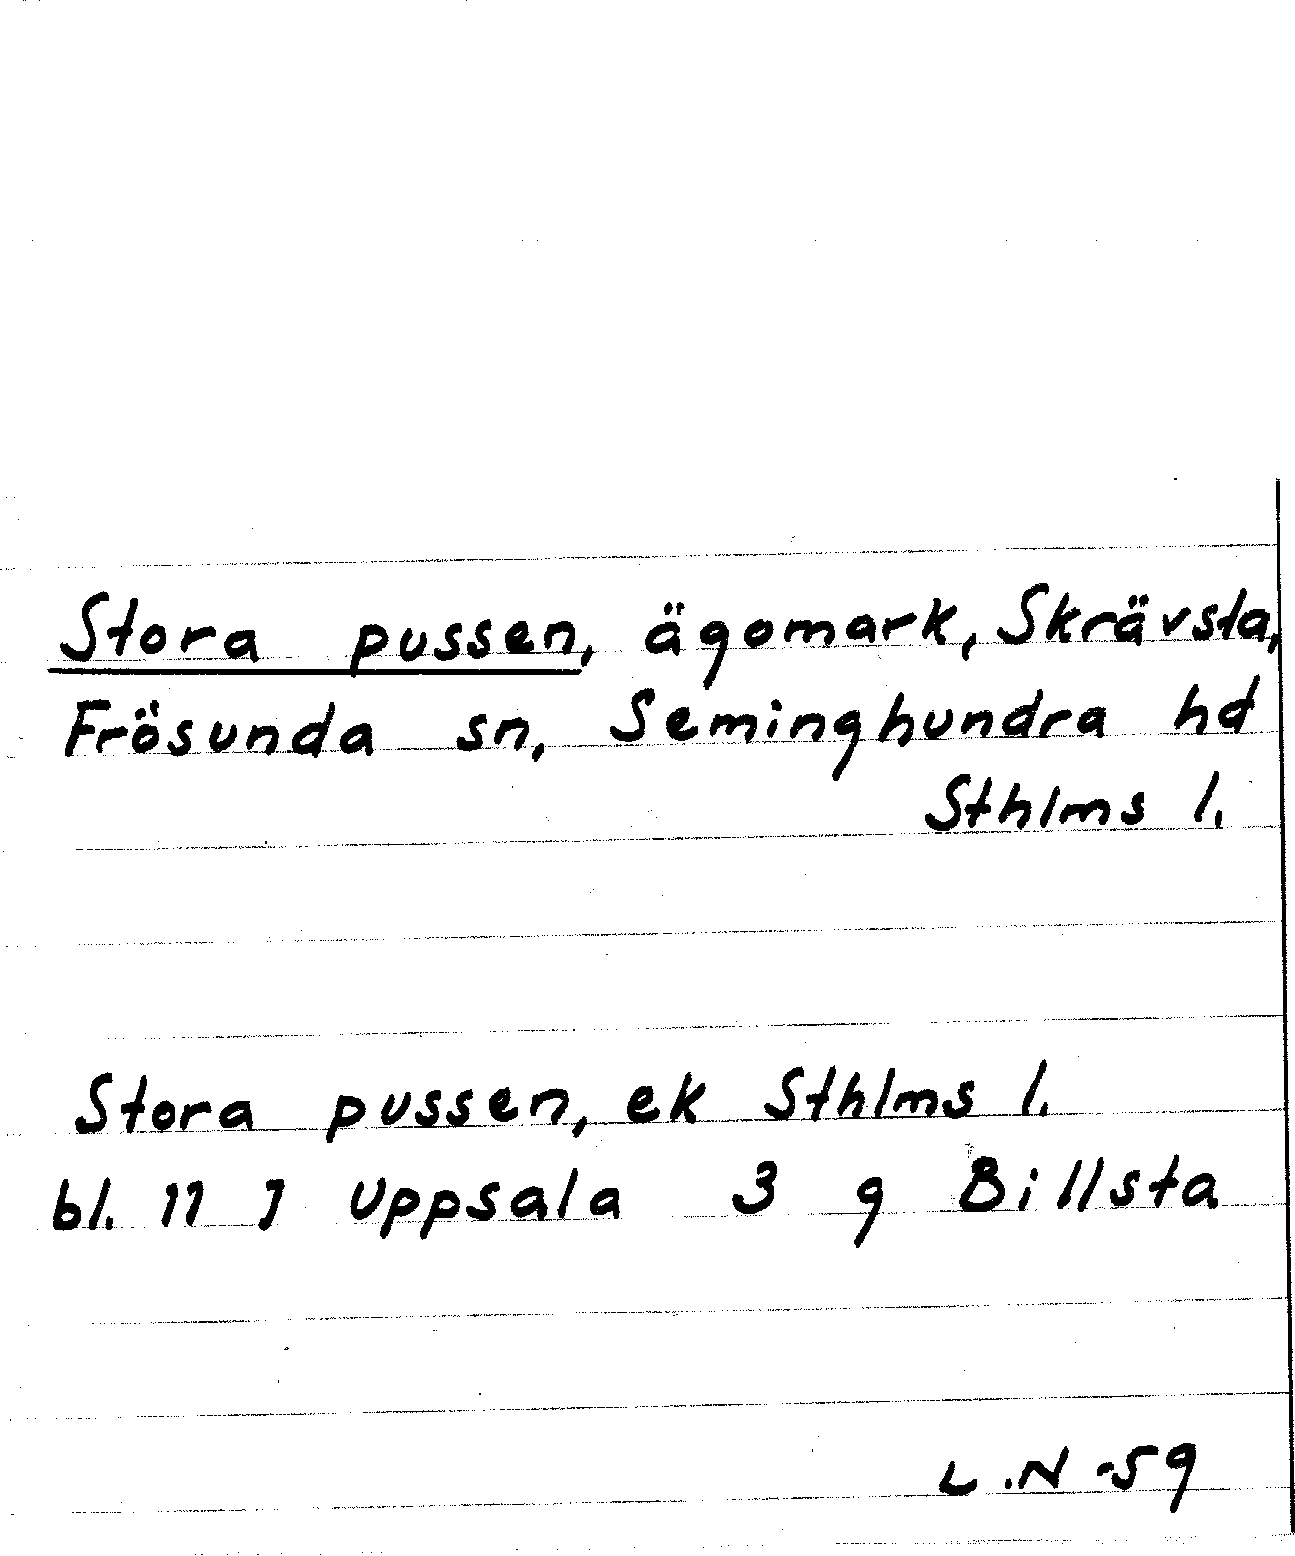 Stora pussen, ägomark, Skrävsta,
Frösunda sn, Seminghundra hd
Sthlms l.
Stora pussen, ek Sthlms l.
bl. 11 J Uppsala 3 g Billsta
L.N -59